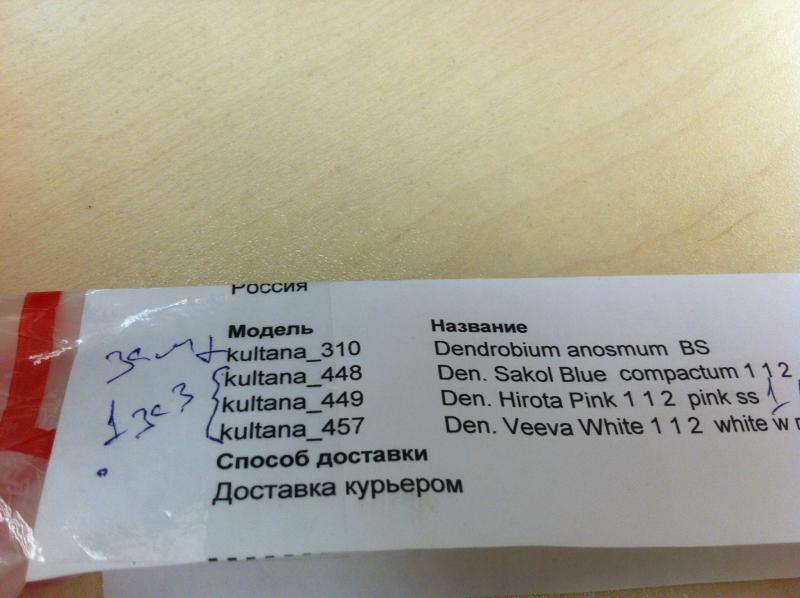 Россия
Модель Название
kultana_310 Dendrobium anosmum BS
kultana_448 Den. Sakol Blue compactum 1 1 2
1 за 3 kultana_449 Den. Hirota Pink 1 1 2 pink ss
kultana_457 Den. Veeva White 1 1 2 white w
Способ доставки
Доставка курьером